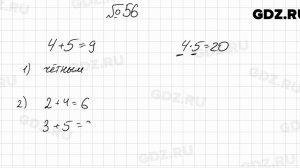 №56
GDZ.RU
4+5=9
4·5=20
1) чётным
2) 2+4=6
3+5=
GDZ.RU